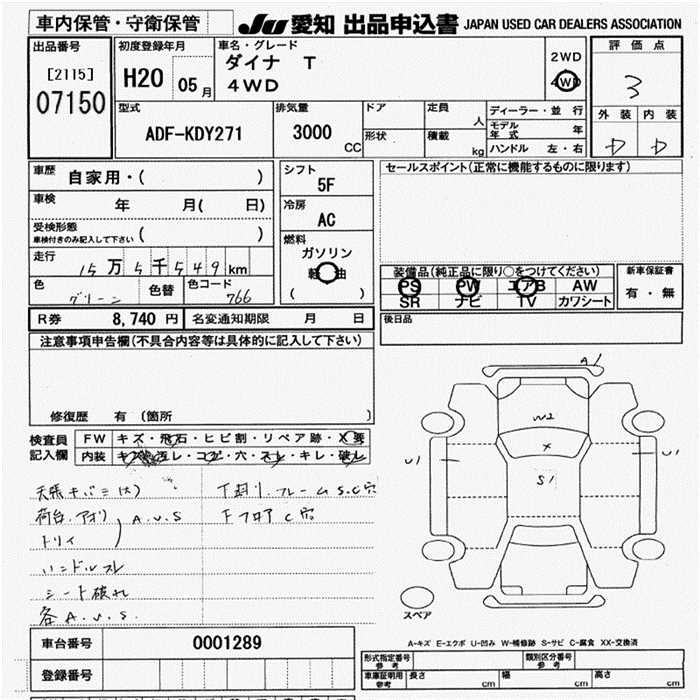 車内保管・守衛保管
JU 愛知 出品申込書 JAPAN USED CAR DEALERS ASSOCIATION
出品番号
[2115]
07150
初度登録年月
H20 05月
車名・グレード
ダイナ T
4WD
2WD
4WD
評価点
3
外装 内装
D D
型式
ADF-KDY271
排気量
3000 CC
ドア
形状
定員 人
積載 kg
ディーラー・並行
モデル年式 年
ハンドル 左・右
車歴 自家用・( )
車検 年 月( 日)
受検形態
車検付きのみ記入して下さい ( )
走行 15万5千549km
色 グリーン 色替 色コード 766
シフト
5F
冷房
AC
燃料
ガソリン
軽油
( )
セールスポイント(正常に機能するものに限ります)
装備品(純正品に限り○をつけてください)
PS PW エアB AW
SR ナビ TV カワシート
新車保証書
有・無
R券 8,740円 名変通知期限 月 日
後日品
注意事項申告欄(不具合内容等は具体的に記入して下さい)
修復歴 有 (箇所 )
検査員記入欄
FW キズ・飛石・ヒビ割・リペア跡・X要
内装 キズ・汚レ・コゲ・穴・スレ・キレ・破レ
天張キバミ(大)
荷台.アオリ
トリイ
A.U.S
ハンドルスレ
シート破れ
各A.U.S.
下廻リ.フレームS.C穴
下フロアC穴
A1
W2
X
S1
U1
U1
スペア
A-キズ E-エクボ U-凹み W-補修跡 S-サビ C-腐食 XX-交換済
車台番号 0001289
登録番号
形式指定番号 参考
類別区分番号 参考
車庫証明用 参考 長さ cm 幅 cm 高さ cm